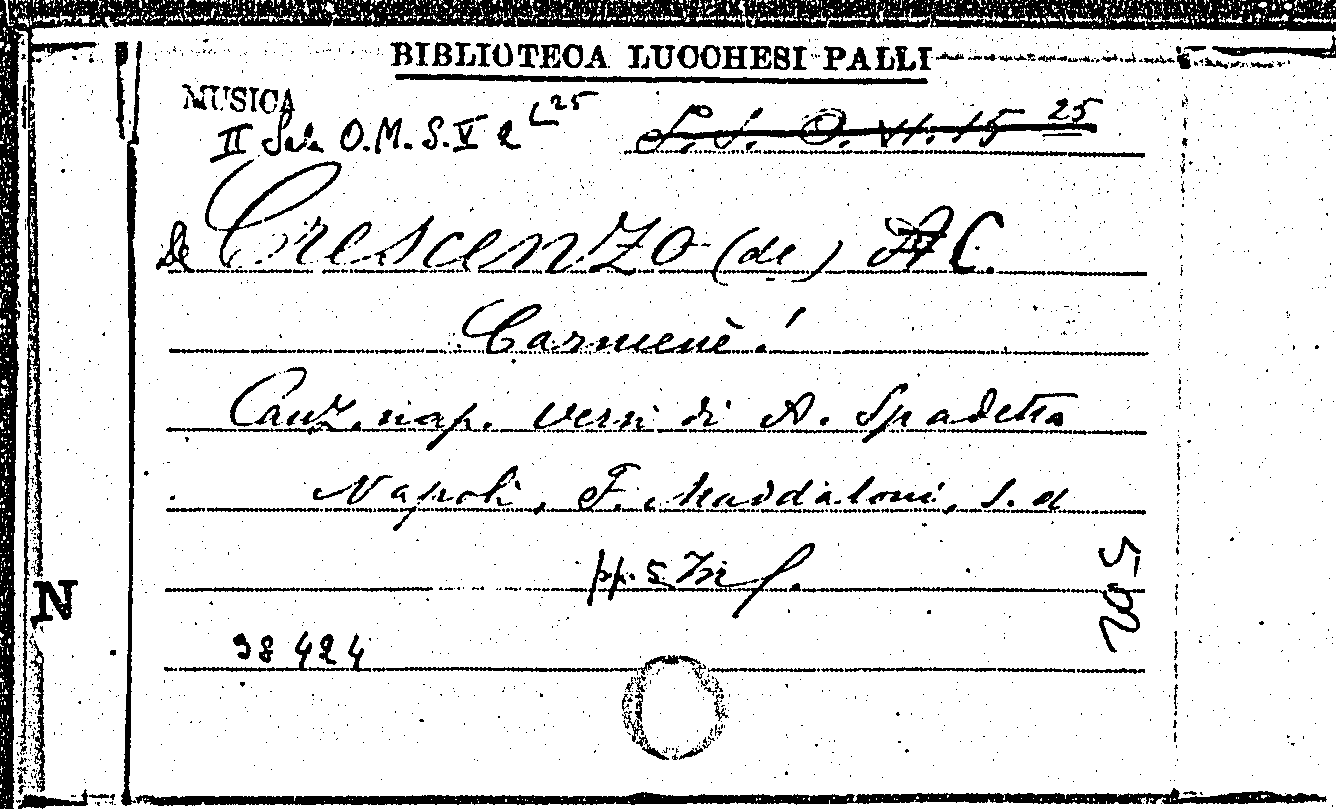 BIBLIOTECA LUCCHESI PALLI
MUSICA
II Sala O.M.S.V 2 L 25 S.S. O. VI. 15 25
De Crescenzo (de) A C.
Carmenè!
Canz. nap. versi di A. Spadetta
Napoli, F. Maddaloni, s. d
pp. 5 In f.
N
38424
295